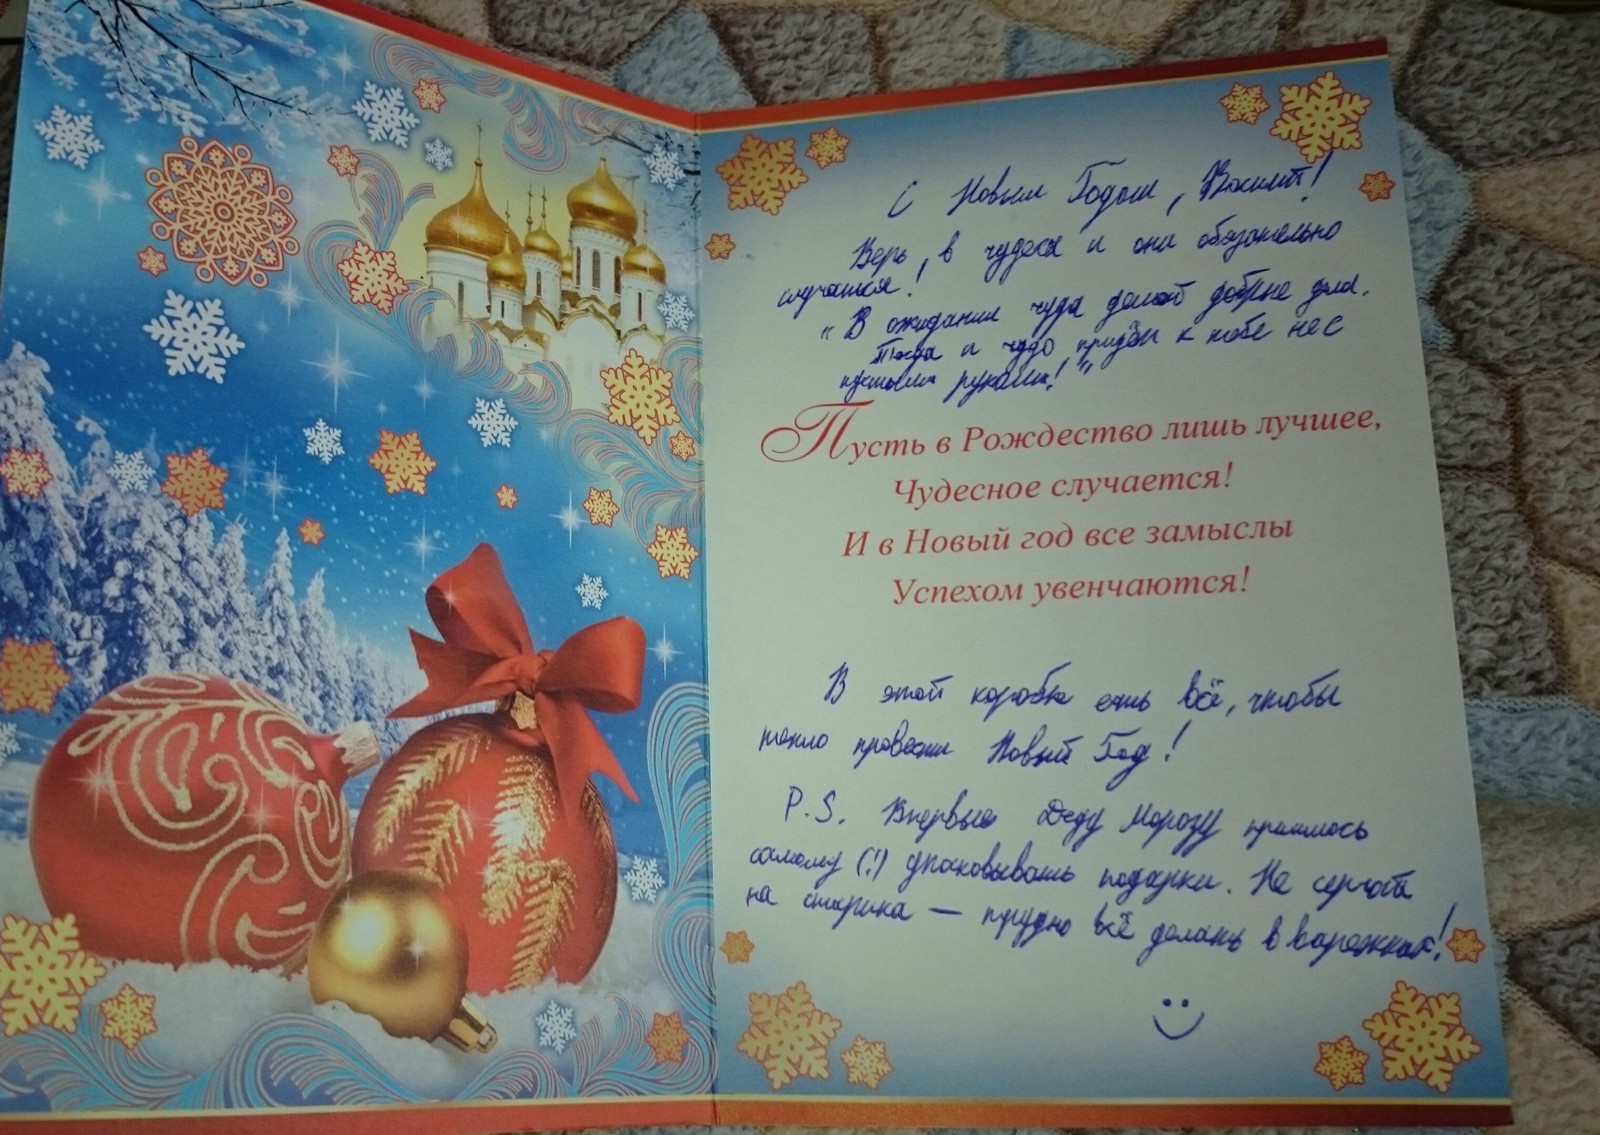 С Новым Годом,
Верь, в чудеса и они обязательно
случатся!
"В ожидании чуда делай добрые дела.
Тогда и чудо придёт к тебе не с
пустыми руками!"
Пусть в Рождество лишь лучшее,
Чудесное случается!
И в Новый год все замыслы
Успехом увенчаются!
В этой коробке есть всё, чтобы
тепло провести Новый Год!
P.S. Впервые Деду Морозу пришлось
самому (!) упаковывать подарки. Не серчай
на старика — трудно всё делать в варежках!